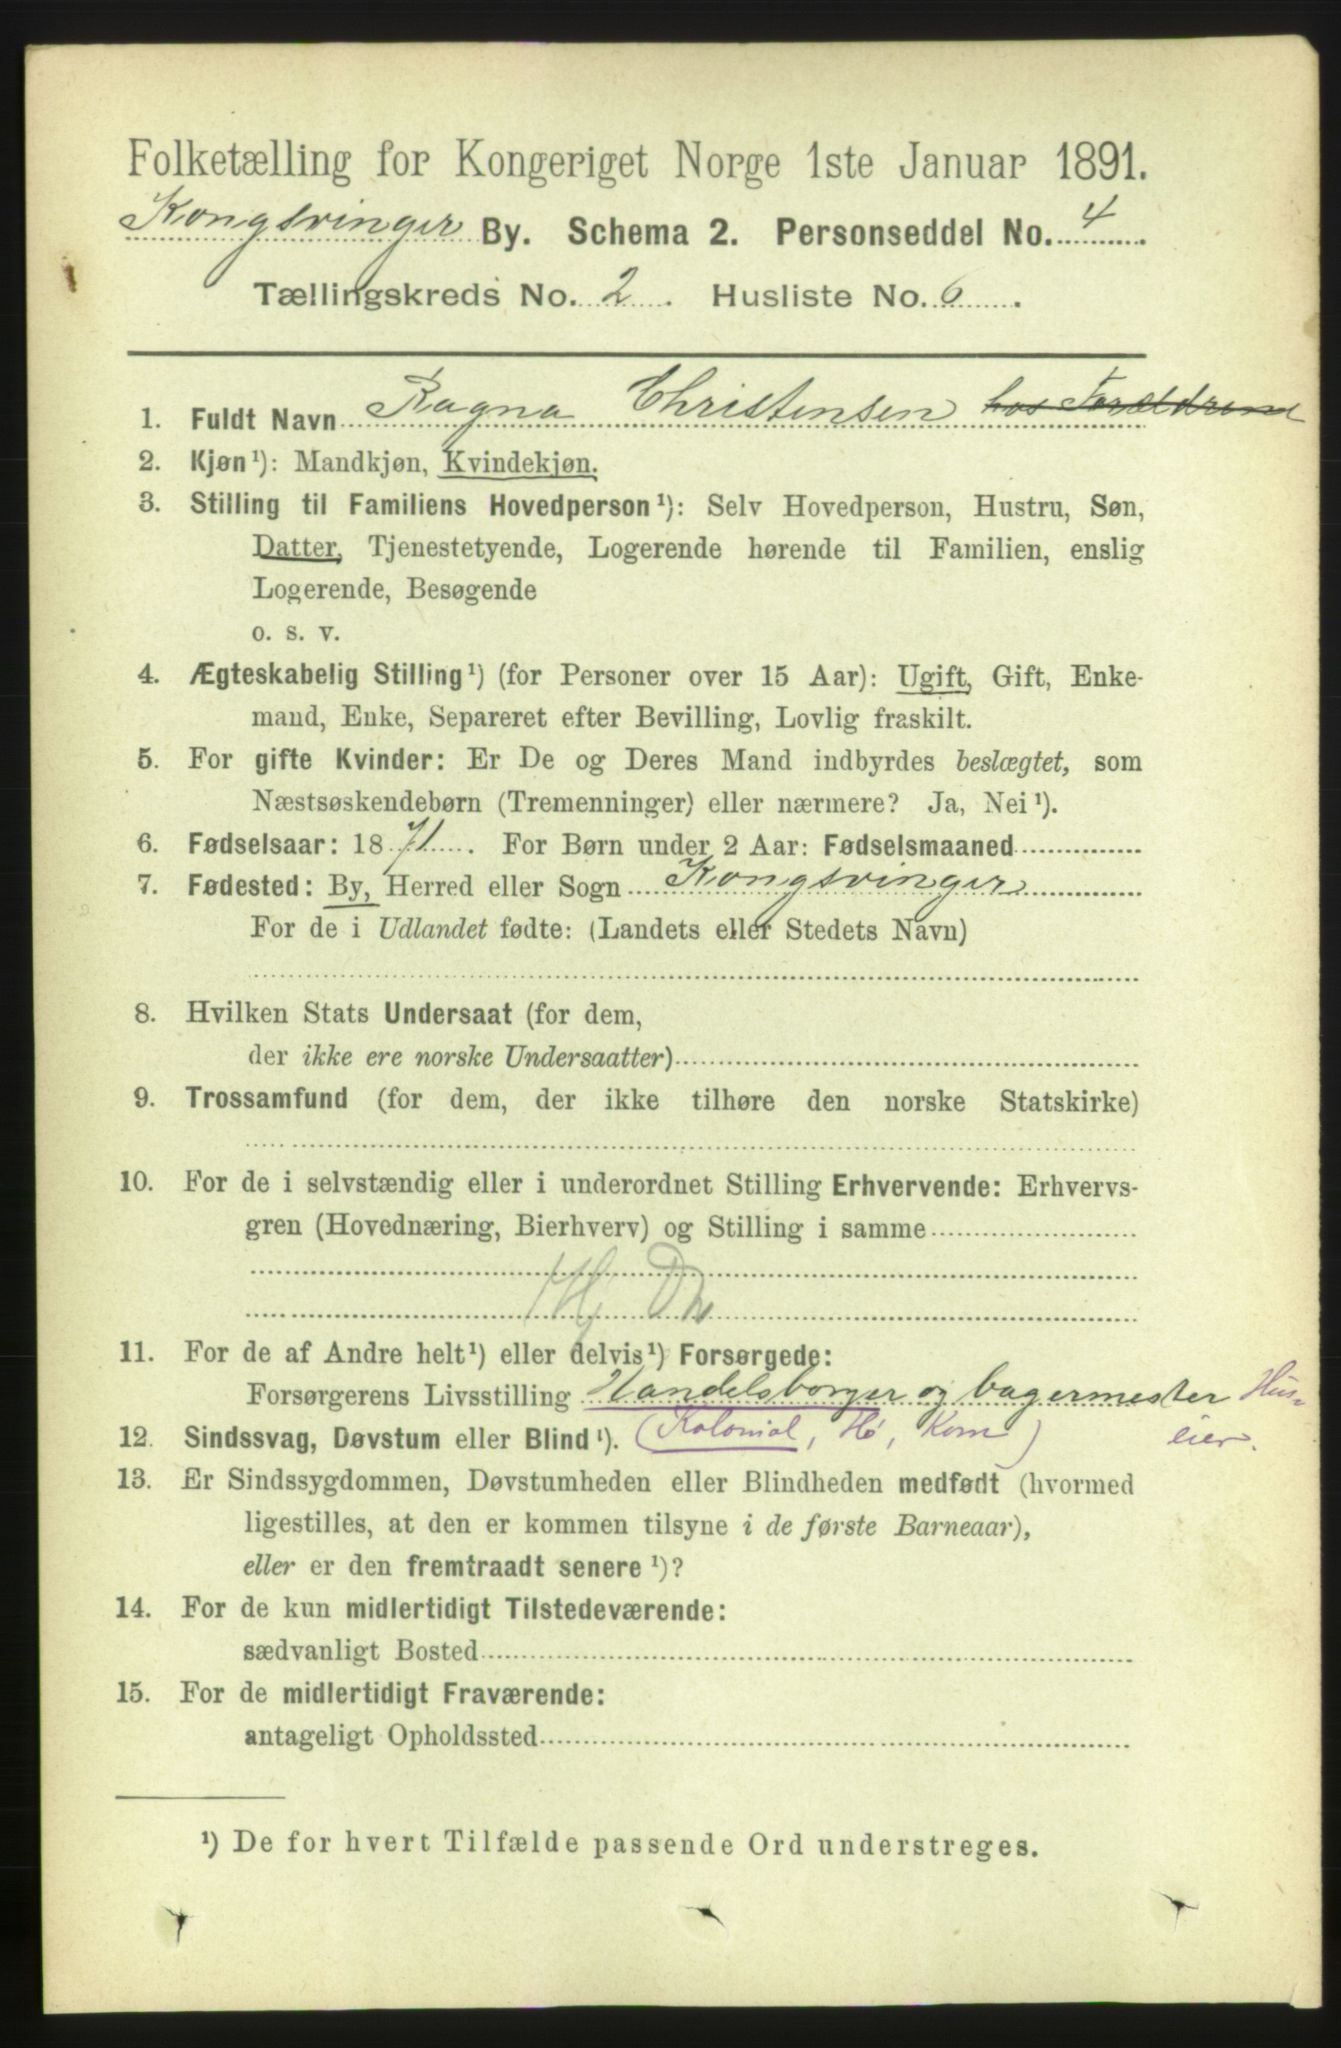 Folketælling for Kongeriget Norge 1ste Januar 1891.
Kongsvinger By. Schema 2. Personseddel No. 4
Tællingskreds No. 2. Husliste No. 6.
1. Fuldt Navn Ragna Christensen hos Forældrene
2. Kjøn¹): Mandkjøn, Kvindekjøn.
3. Stilling til Familiens Hovedperson¹): Selv Hovedperson, Hustru, Søn,
Datter, Tjenestetyende, Logerende hørende til Familien, enslig
Logerende, Besøgende
o. s. v.
4. Ægteskabelig Stilling¹) (for Personer over 15 Aar): Ugift, Gift, Enke-
mand, Enke, Separeret efter Bevilling, Lovlig fraskilt.
5. For gifte Kvinder: Er De og Deres Mand indbyrdes beslægtet, som
Næstsøskendebørn (Tremenninger) eller nærmere? Ja, Nei¹).
6. Fødselsaar: 1871. For Børn under 2 Aar: Fødselsmaaned
7. Fødested: By, Herred eller Sogn Kongsvinger
For de i Udlandet fødte: (Landets eller Stedets Navn)
8. Hvilken Stats Undersaat (for dem,
der ikke ere norske Undersaatter)
9. Trossamfund (for dem, der ikke tilhøre den norske Statskirke)
10. For de i selvstændig eller i underordnet Stilling Erhvervende: Erhvervs-
gren (Hovednæring, Bierhverv) og Stilling i samme
11. For de af Andre helt¹) eller delvis¹) Forsørgede:
Forsørgerens Livsstilling Handelsborger og bagermester Hus-
eier.
(Kolonial, Hø, Korn)
12. Sindssvag, Døvstum eller Blind¹).
13. Er Sindssygdommen, Døvstumheden eller Blindheden medfødt (hvormed
ligestilles, at den er kommen tilsyne i de første Barneaar),
eller er den fremtraadt senere¹)?
14. For de kun midlertidigt Tilstedeværende:
sædvanligt Bosted
15. For de midlertidigt Fraværende:
antageligt Opholdssted
¹) De for hvert Tilfælde passende Ord understreges.